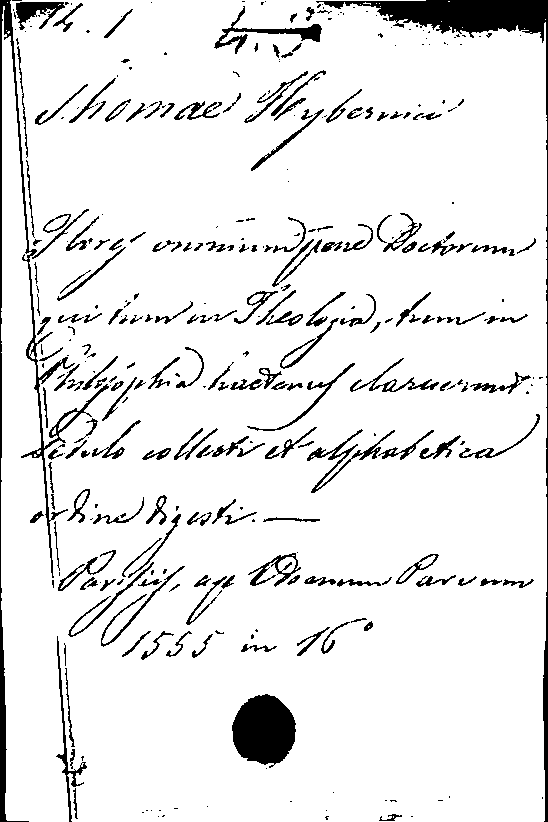 14.1
Thomae Hybernici
Flores omnium pene Doctorum
qui tum in Theologia, tum in
Philosophia hactenus claruerunt.
Sedulo collecti et alphabetica
ordine digesti. —
Parisiis, ap Odoenum Parvum
1555 in 16°